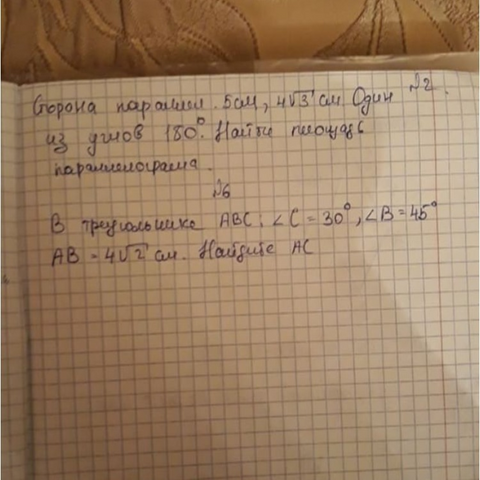 Сторона параллел. 5см, 4√3 см. Один №2.
из углов 150°. Найти площадь
параллелограма.
№6
В треугольнике ABC: ∠C = 30°, ∠B = 45°
AB = 4√2 см. Найдите AC